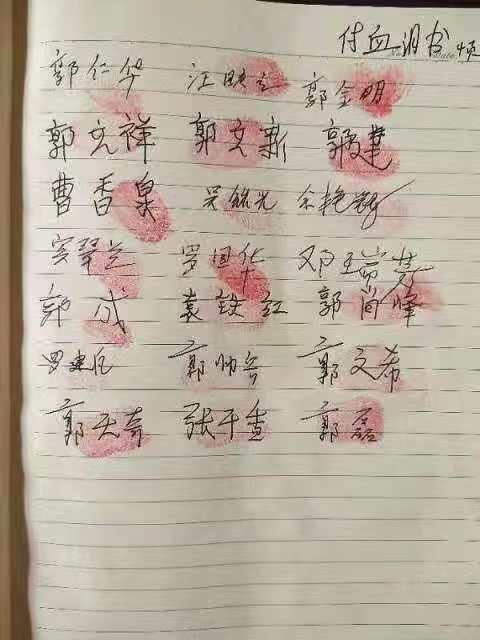 付血泪书4页
郭仁华 汪映兰 郭金明
郭克祥 郭文新 郭建
曹香泉 吴铭光 余艳
翠兰 罗国华 邓玉
郭成 袁铁红 郭尚峰
罗建 郭帅兵 郭文希
郭天奇 张千香 郭磊